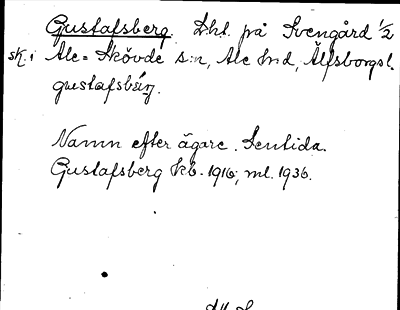 Gustafsberg. Lht. på Svengård 1/2
sk. i Ale-Skövde s:n, Ale hrd, Älfsborgs l.
gustafsbärj.
Namn efter ägare. Sentida.
Gustafsberg kb. 1916; ml. 1936.